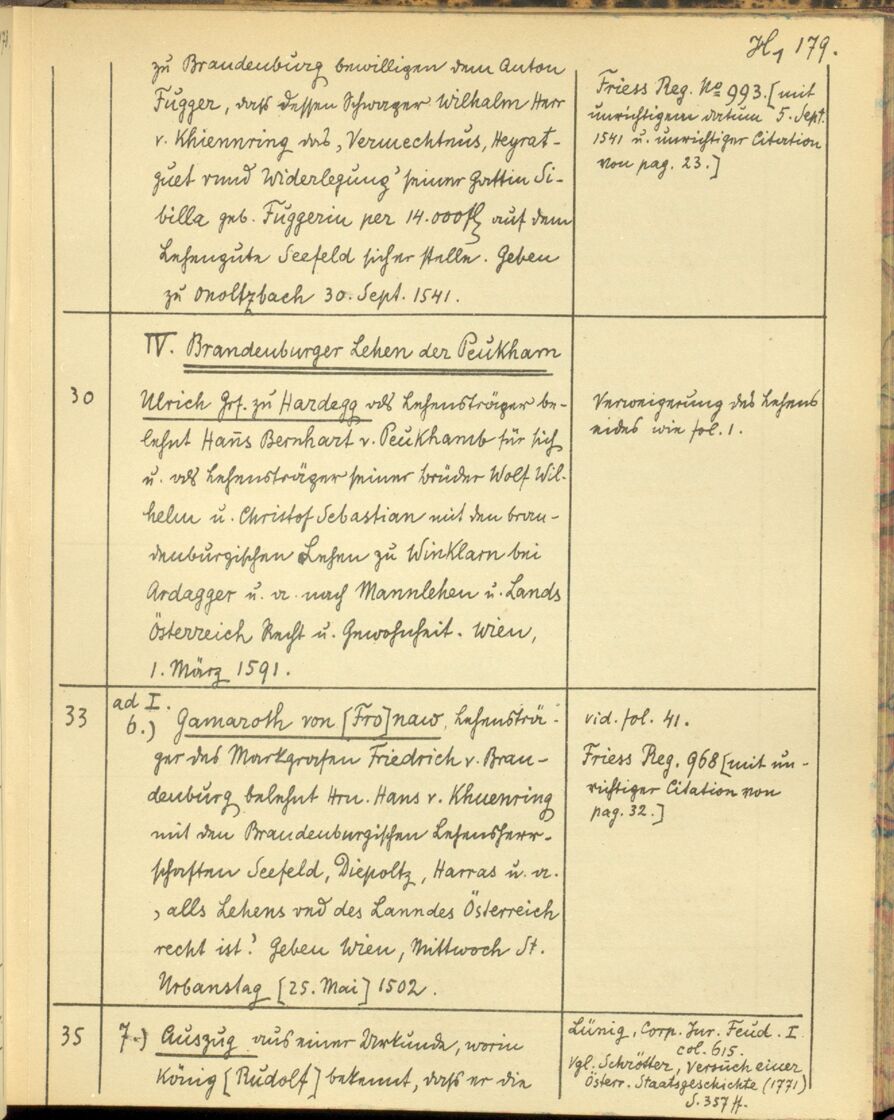 H, 179.
zu Brandenburg bewilligen dem Anton
Fugger, daſs deſſen Schwager Wilhalm Herr
v. Khiennring das, Vermechtnus, Heyrat-
guet vnnd Widerlegung' seiner Gattin Si-
billa geb. Fuggerin per 14.000 fl auf dem
Lehengute Seefeld sicher stelle. Geben
zu Onoltzbach 30. Sept. 1541.
Friess Reg. No 993. [mit
unrichtigem datum 5. Sept.
1541 u. unrichtiger Citation
von pag. 23.]
IV. Brandenburger Lehen der Peukharn
30
Ulrich Grf. zu Hardegg als Lehensträger be-
lehnt Hans Bernhart v. Peukhamb für sich
u. als Lehensträger seiner brüder Wolf Wil-
helm u. Christof Sebastian mit den bran-
denburgischen Lehen zu Winklarn bei
Ardagger u. a. nach Mannlehen u. Lands
Österreich Recht u. Gewohnheit. Wien,
1. März 1591.
Verweigerung des Lehens
eides wie fol. 1.
33
ad I.
6.) Gamaroth von [Fro]naw, Lehensträ-
ger des Markgrafen Friedrich v. Bran-
denburg belehnt Hrn. Hans v. Khuenring
mit den Brandenburgischen Lehensherr-
schaften Seefeld, Diepoltz, Harras u. a.
, alls Lehens vnd des Lanndes Österreich
recht ist.' Geben Wien, Mittwoch St.
Urbanstag [25. Mai] 1502.
vid. fol. 41.
Friess Reg. 968 [mit un-
richtiger Citation von
pag. 32.]
35
7.) Auszug aus einer Urkunde, worin
König [Rudolf] bekennt, daſs er die
Lünig, Corp. Jur. Feud. I
col. 615.
Vgl. Schrötter, Versuch einer
Österr. Staatsgeschichte (1771)
S. 357 ff.